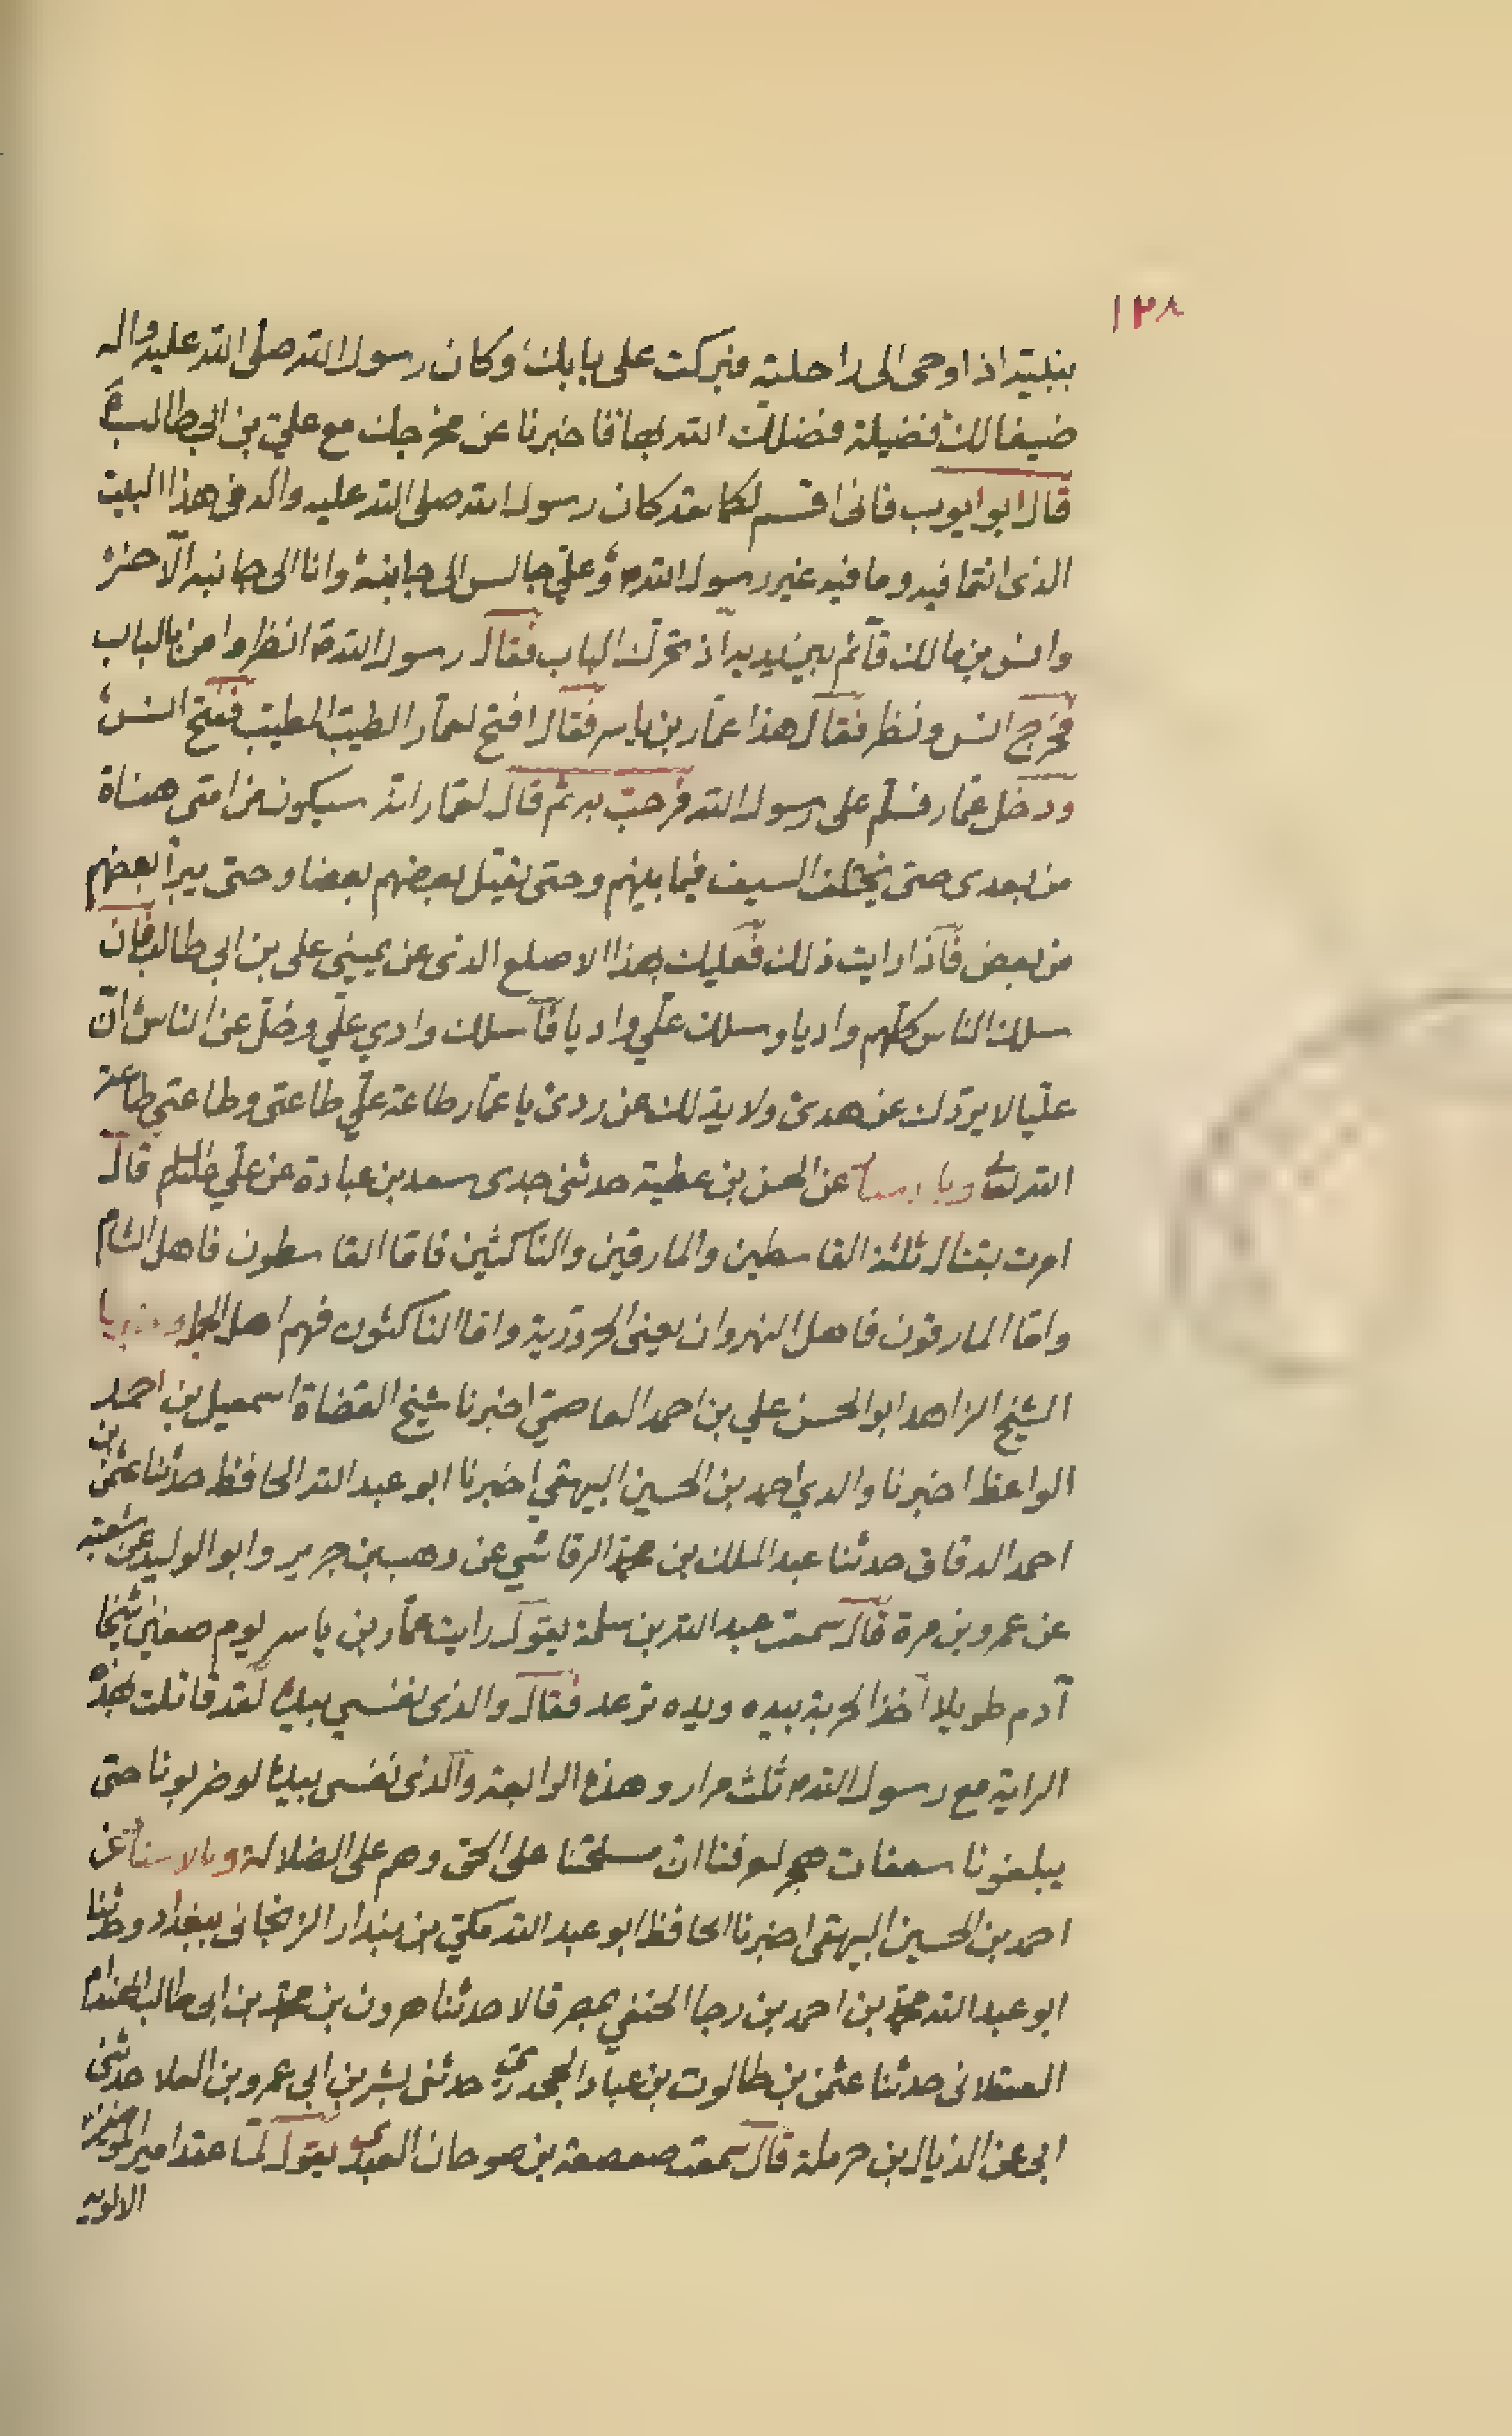 ١٢٨
بنبيه اذ اوحى الى راحلته فبركت على بابك وكان رسول الله صلى الله عليه واله
ضيفا لك فضيلة فضلك الله بها فاخبرنا عن مخرجك مع علي بن ابي طالب
قال ابو ايوب فانى اقسم لكما لقد كان رسول الله صلى الله عليه واله فى هذا البيت
الذى انتما فيه وما فيه غير رسول الله وعلي جالس الى جانبه وانا الى جانبه الآخر
وانس بن مالك قائم بين يديه اذ تحرك الباب فقال رسول الله انظروا من بالباب
فخرج انس ونظر فقال هذا عمار بن ياسر فقال افتح لعمار الطيب المطيب ففتح انس
ودخل عمار فسلم على رسول الله فرحب به ثم قال لعمار انه سيكون من امتى هناة
من بعدى حتى يختلف السيف فيما بينهم وحتى يقتل بعضهم بعضا وحتى يبرأ بعضهم
من بعض فاذا رايت ذلك فعليك بهذا الاصلع الذى عن يمينى على بن ابي طالب فان
سلك الناس كلهم واديا وسلك علي واديا فاسلك وادي علي وخل عن الناس ان
عليا لا يردك عن هدى ولا يدلك عن ردى يا عمار طاعة علي طاعتى وطاعتي طاعة
الله عن الحسن بن عطية حدثنى جدى سعد بن عبادة عن علي قال
امرت بقتال ثلثة القاسطين والمارقين والناكثين فاما القاسطون فاهل الشام
واما المارقون فاهل النهروان يعنى الحرورية واما الناكثون فهم اهل الجمل
الشيخ الزاهد ابو الحسن علي بن احمد العاصمي اخبرنا شيخ القضاة اسمعيل بن احمد
الواعظ اخبرنا والدي احمد بن الحسين البيهقي اخبرنا ابو عبد الله الحافظ حدثنا عثمن بن
احمد الدقاق حدثنا عبد الملك بن محمد الرقاشي عن وهب بن جرير وابو الوليد عن شعبة
عن عمرو بن مرة قال سمعت عبد الله بن سلمة يقول رايت عمار بن ياسر يوم صفين شيخا
آدم طويلا آخذ الحربة بيده ويده ترعد فقال والذى نفسي بيده لقد قاتلت بهذه
الراية مع رسول الله ثلث مرار وهذه الرابعة والذى نفسى بيده لو ضربونا حتى
يبلغونا سعفات هجر لعرفنا ان مصلحتنا على الحق وهم على الضلالة وبالاسناد عن
احمد بن الحسين البيهقى اخبرنا الحافظ ابو عبد الله مكي بن بندار الزنجانى ببغداد وحدثنا
ابو عبد الله محمد بن احمد بن رجا الحنفي بمصر قالا حدثنا هرون بن محمد بن ابى
العسقلانى حدثنا عثمن بن طالوت بن عباد الجحدري حدثنى بشر بن ابى عمرو بن العلا حدثنى
ابى عن الذيال بن حرملة قال سمعت صعصعة بن صوحان العبدى يقول لما عقد امير المؤمنين
الالوية